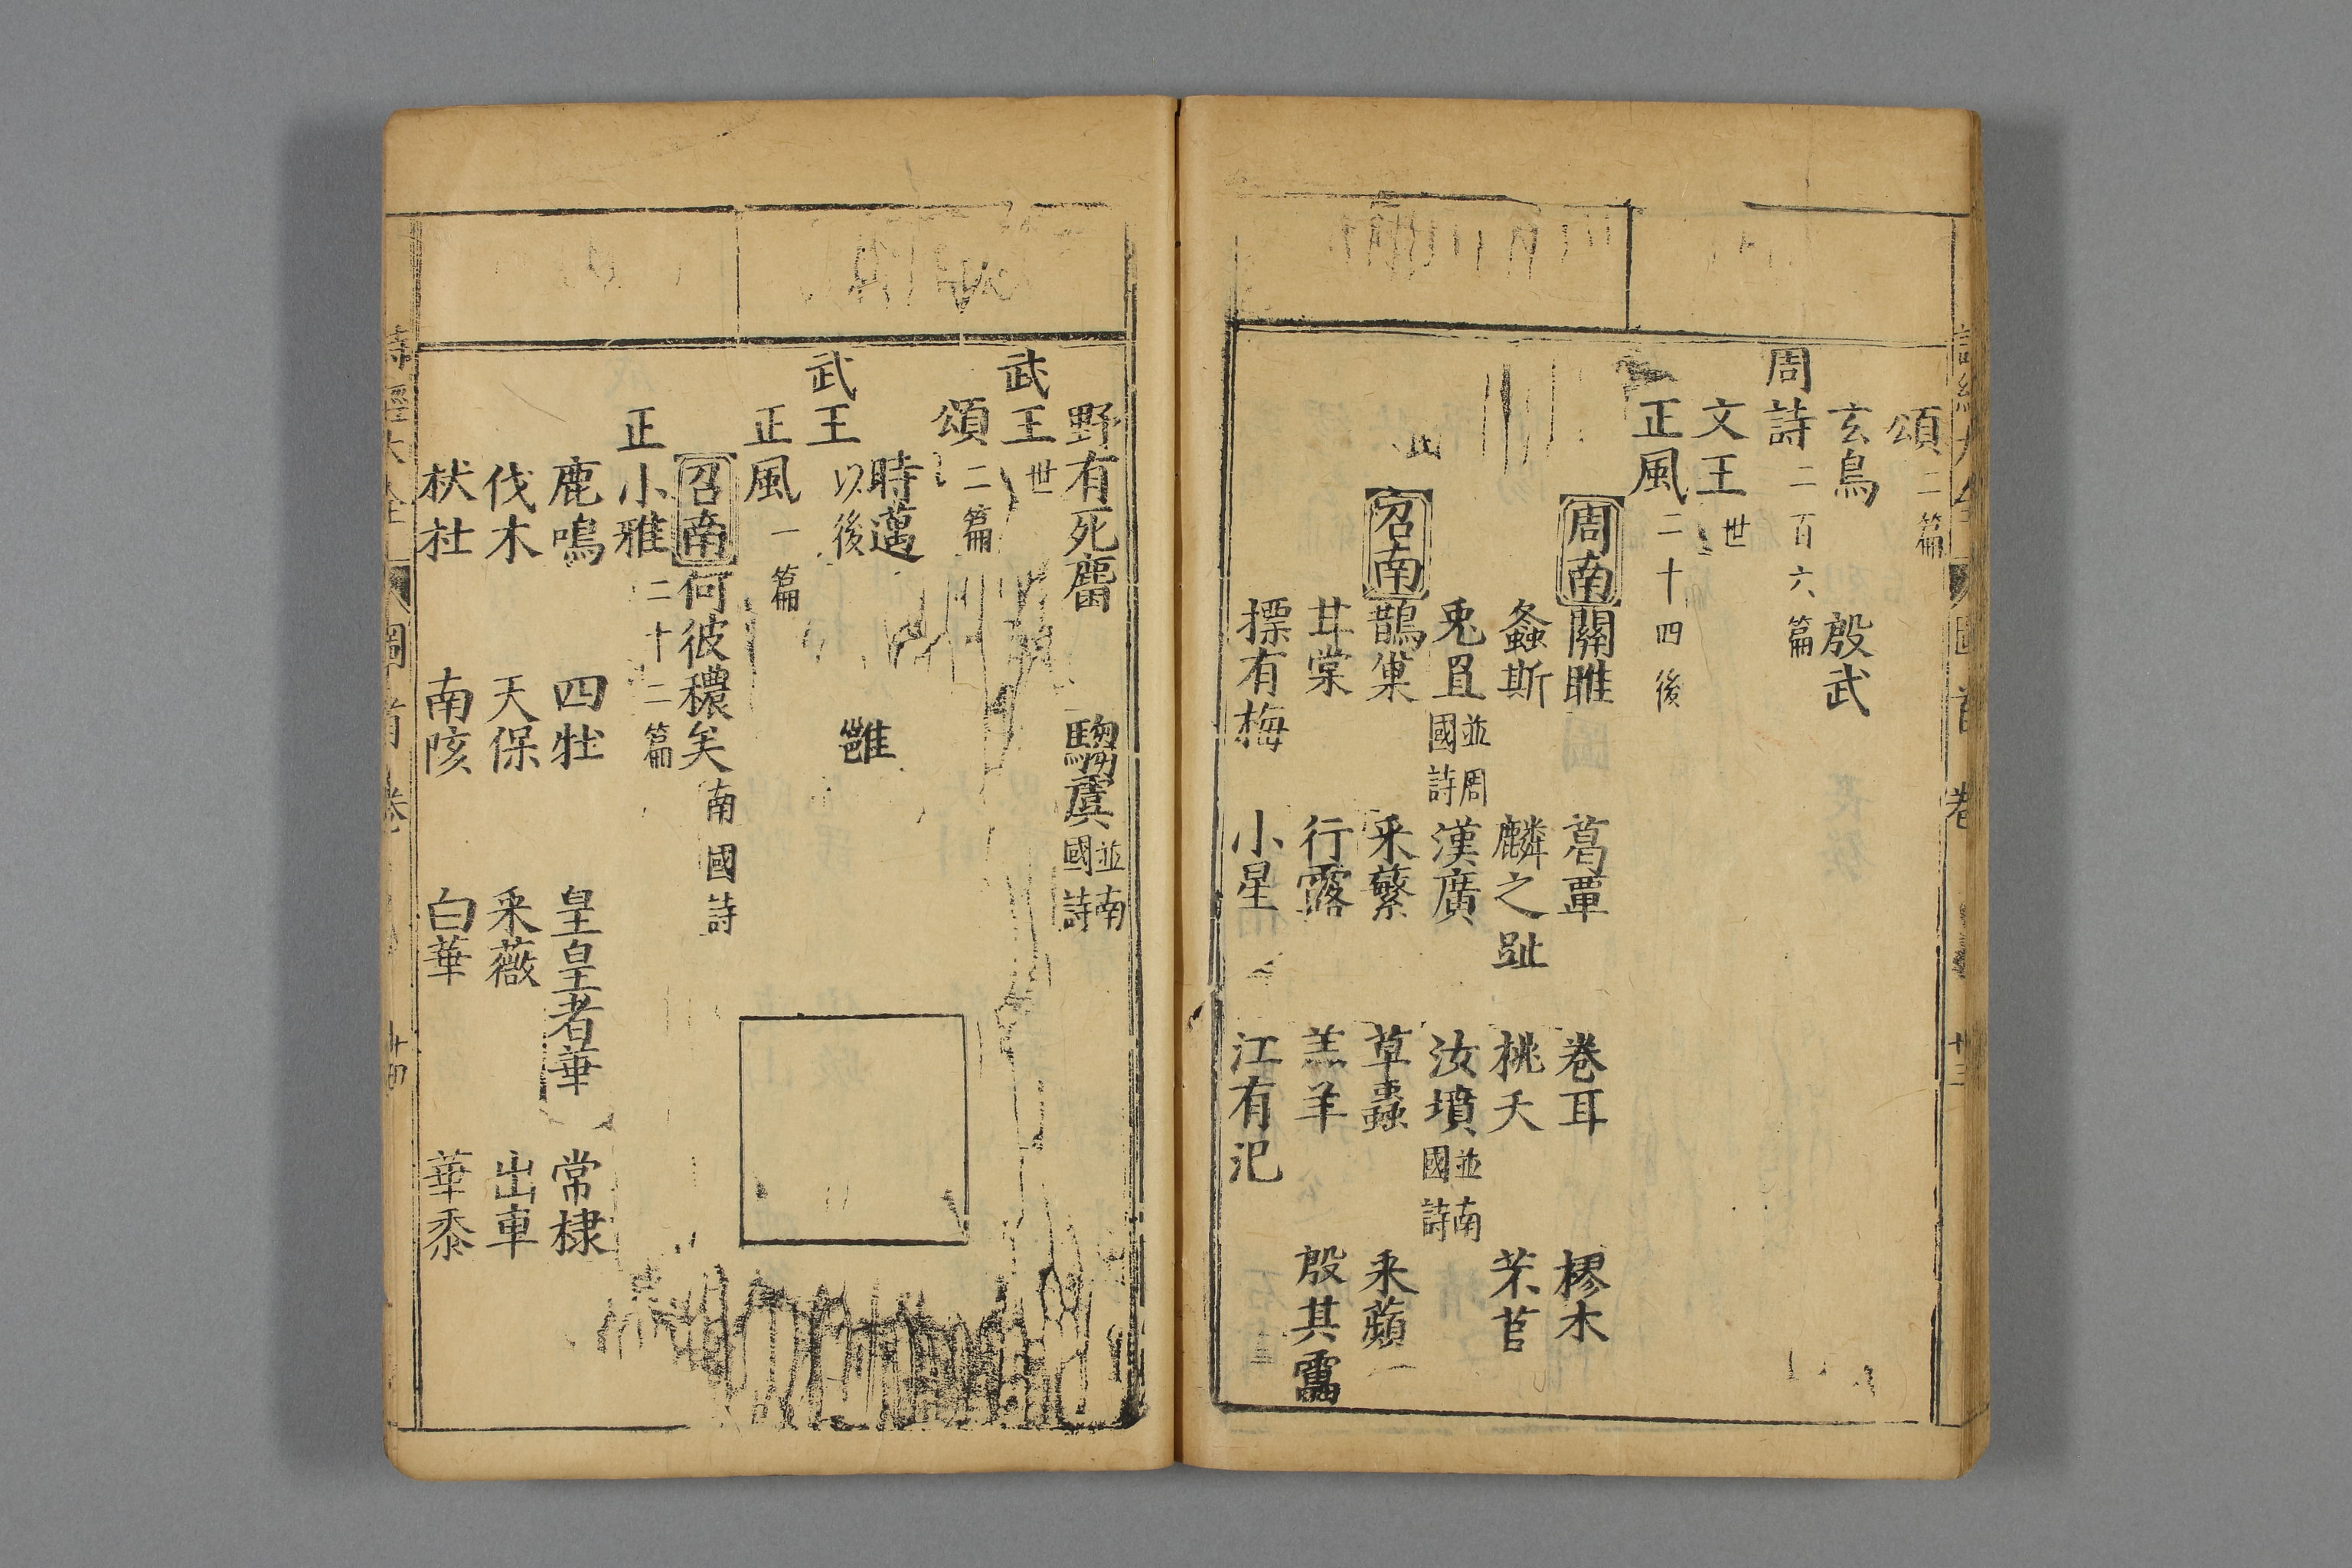 頌二篇
玄鳥 殷武
周詩二百六篇
文王世
正風二十四後
周南關雎 葛覃 卷耳 樛木
螽斯 麟之趾 桃夭 芣苢
兎罝並周國詩 漢廣 汝墳並南國詩
召南鵲巢 采蘩 草蟲 采蘋
甘棠 行露 羔羊 殷其靁
摽有梅 小星 江有汜
野有死麕 騶虞並南國詩
武王世
頌二篇
時邁 雝
武王以後
正風一篇
召南何彼穠矣南國詩
正小雅二十二篇
鹿鳴 四牡 皇皇者華 常棣
伐木 天保 采薇 出車
杕杜 南陔 白華 華黍
詩經大全 圖 首卷 十四